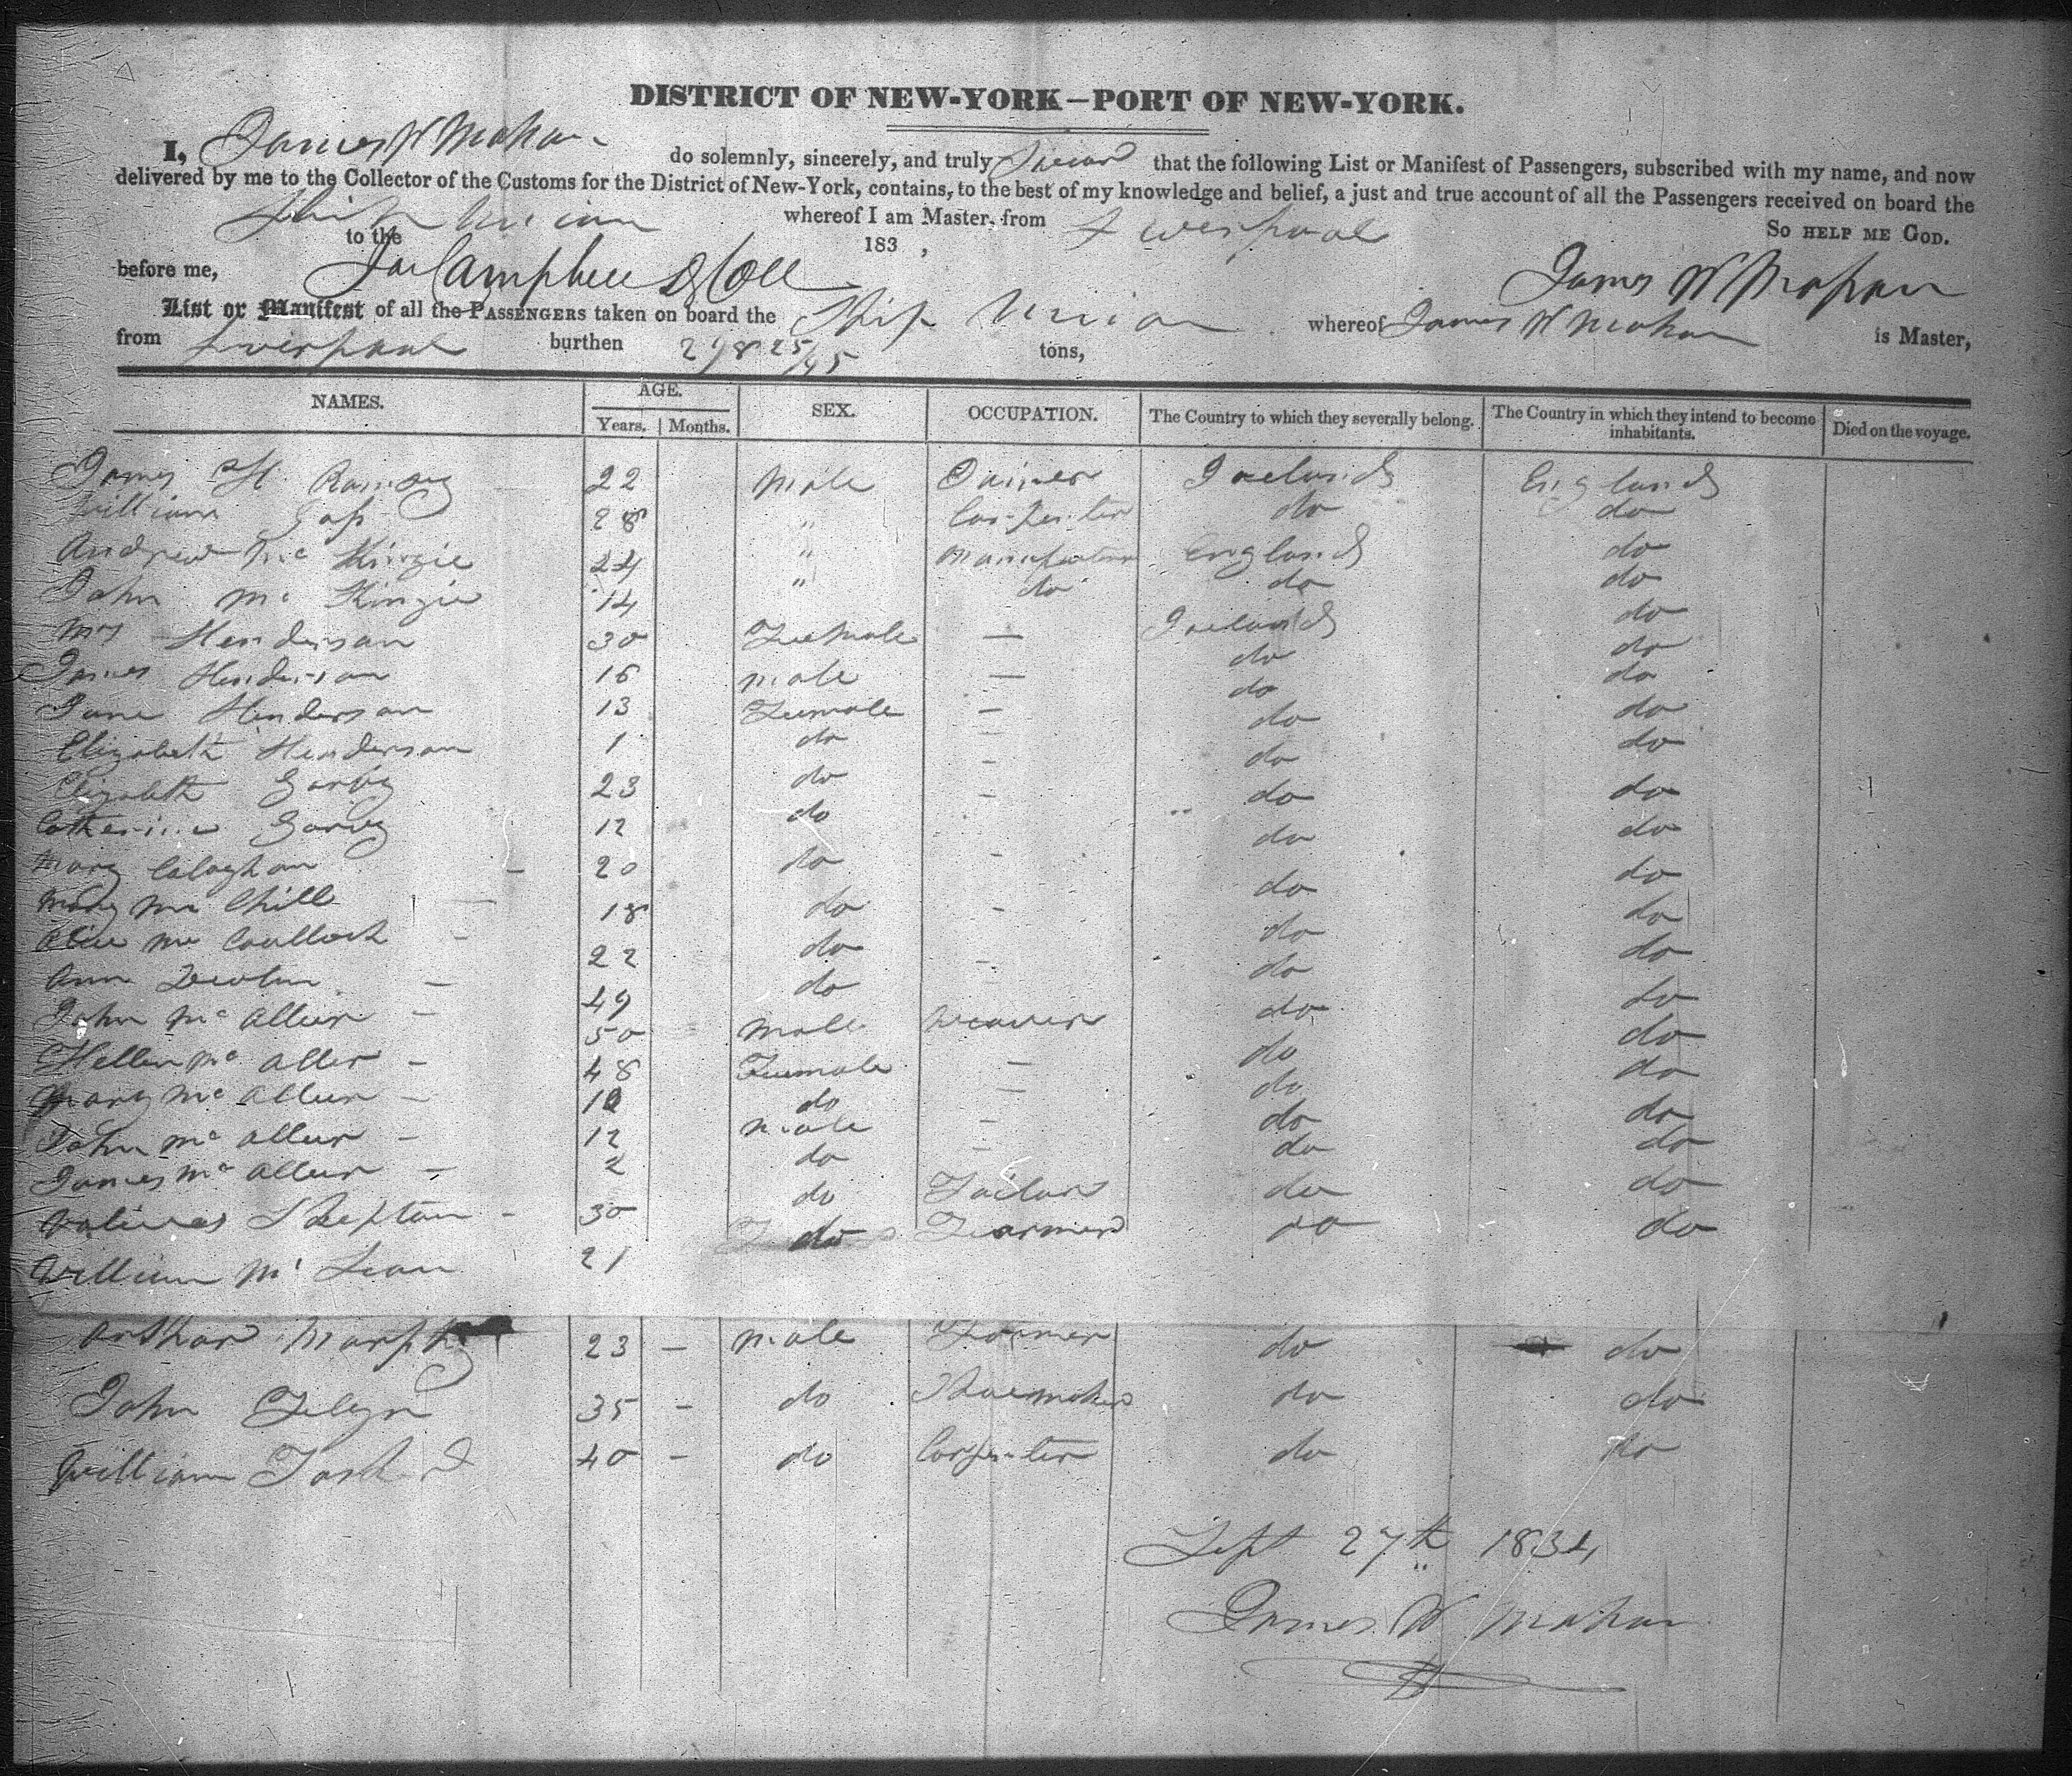 DISTRICT OF NEW-YORK—PORT OF NEW-YORK.
I, James W Mahan do solemnly, sincerely, and truly swear that the following List or Manifest of Passengers, subscribed with my name, and now
delivered by me to the Collector of the Customs for the District of New-York, contains, to the best of my knowledge and belief, a just and true account of all the Passengers received on board the
Ship Union whereof I am Master, from Liverpool
to the 183 , So HELP ME GOD.
before me, Campbell Coll James W Mahan
List or Manifest of all the PASSENGERS taken on board the Ship Union whereof James W Mahan is Master,
from Liverpool burthen 298 25/95 tons,
NAMES. AGE. Years. Months. SEX. OCCUPATION. The Country to which they severally belong. The Country in which they intend to become inhabitants. Died on the voyage.
James H. Ramsay 22 Male Ireland England
William 28 " Carpenter do do
Andrew Mc Kinzie 24 " Manufacturer England do
John Mc Kinzie 14 " do do do
Mrs Henderson 30 Feemale — Ireland do
James Henderson 16 male — do do
Jane Henderson 13 Feemale — do do
Elizabeth Henderson 1 do - do do
Elizabeth Garvey 23 do - do do
Catherine Garvey 12 do - do do
Mary Calaghan - 20 do - do do
Mary Mc Chill — 18 do - do do
Alice Mc Coulloch - 22 do - do do
Ann Devolin - 49 do do do
John Mc Alleer - 50 male weaver do do
Hellen Mc Aller - 48 Feemale — do do
Mary Mc Alleer - 10 do — do do
John Mc Alleer - 12 male - do do
James Mc Alleer - 2 do - do do
Skeptan - 30 do Tailor do do
William Mc Lean 21 do Fearmer do do
Arthur Murphy 23 — male Farmer do do
John Felyn 35 - do Shoemaker do do
William 40 - do Carpenter do do
Sept 27th 1834
James W Mahan